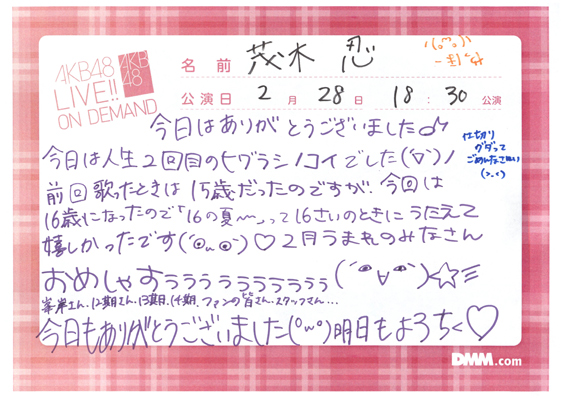 AKB48
LIVE!!
ON DEMAND
AKB
48
名前 茂木 忍
公演日 2月 28日 18:30 公演
今日はありがとうございました♪
仕切り
グダって
ごめんなさい
(>.<)
今日は人生2回目のヒグラシノコイでした(´∀`)ノ
前回歌ったときは15歳だったのですが、今回は
16歳になったので「16の夏〜」って16さいのときにうたえて
嬉しかったです(´◉ω◉`)♡2月うまれのみなさん
おめしゃすぅぅぅぅぅぅぅぅぅぅ(´°∀°`)<☆彡
峯岸さん、12期さん、13期、14期、ファンの皆さん、スタッフさん...
今日もありがとうございました(°ω°)明日もよろちく♡
DMM.com